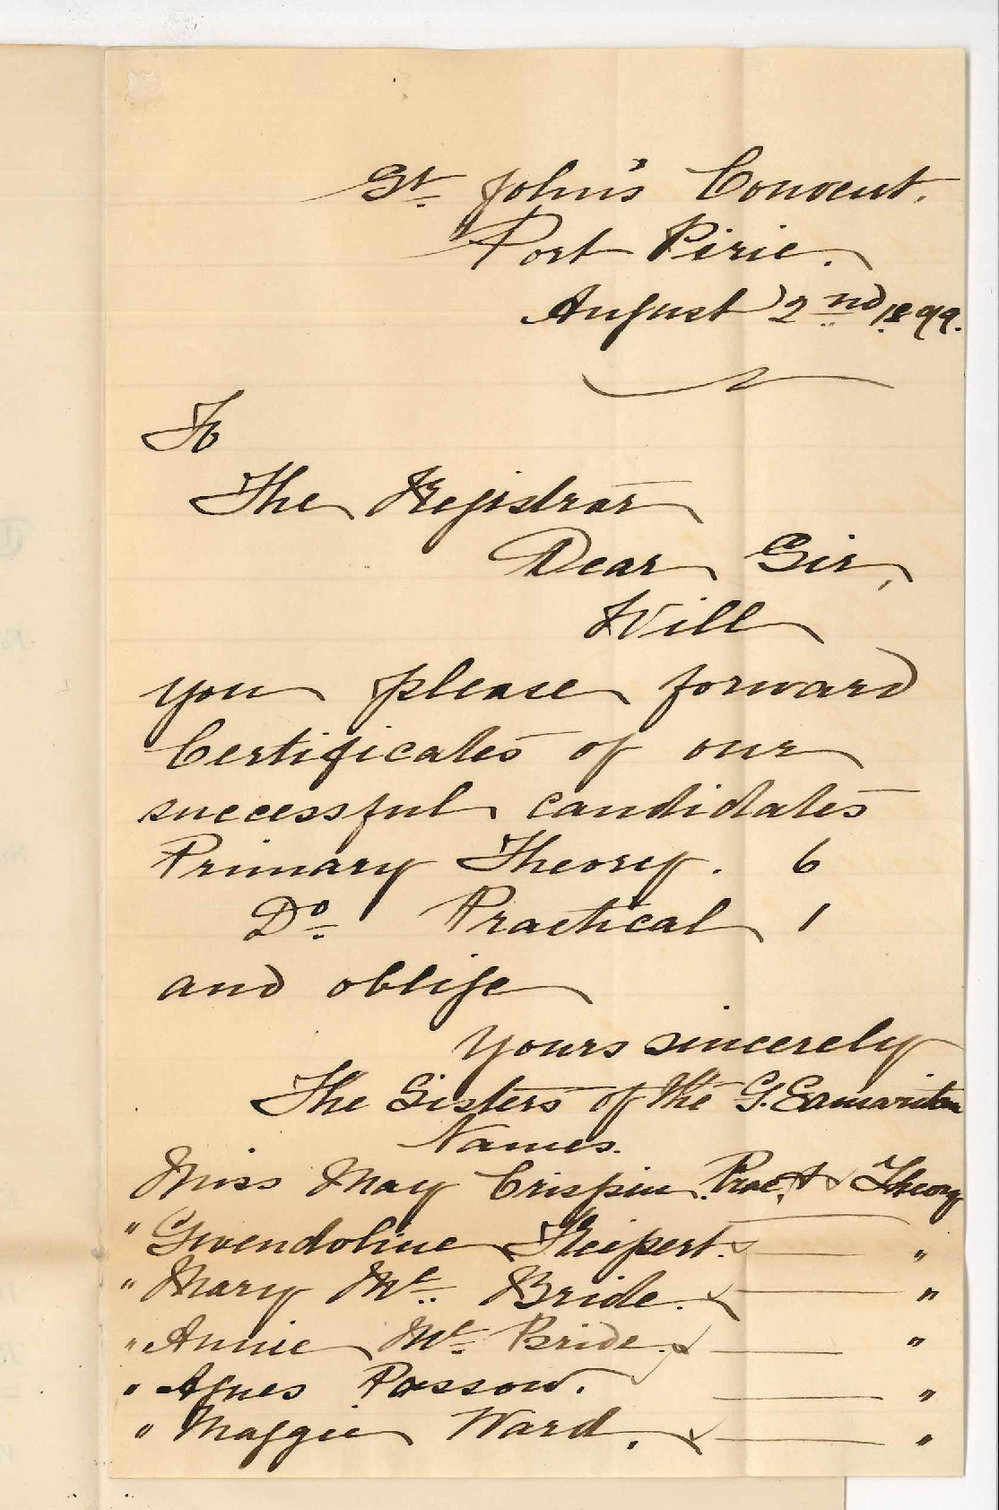 St. John's Convent.
Port Pirie.
August 2nd 1899.
To
The Registrar
Dear Sir,
Will
you please forward
Certificates of our
successful candidates
Primary Theory. 6
Do. Practical 1
and oblige
Yours sincerely
The Sisters of the G. Samaritan
Names.
Miss May Crispin. Pract & Theory
" Gwendoline Keipert. — "
" Mary Mc. Bride. — "
" Annie Mc. Bride. — "
" Agnes Possow. — "
" Maggie Ward. — "